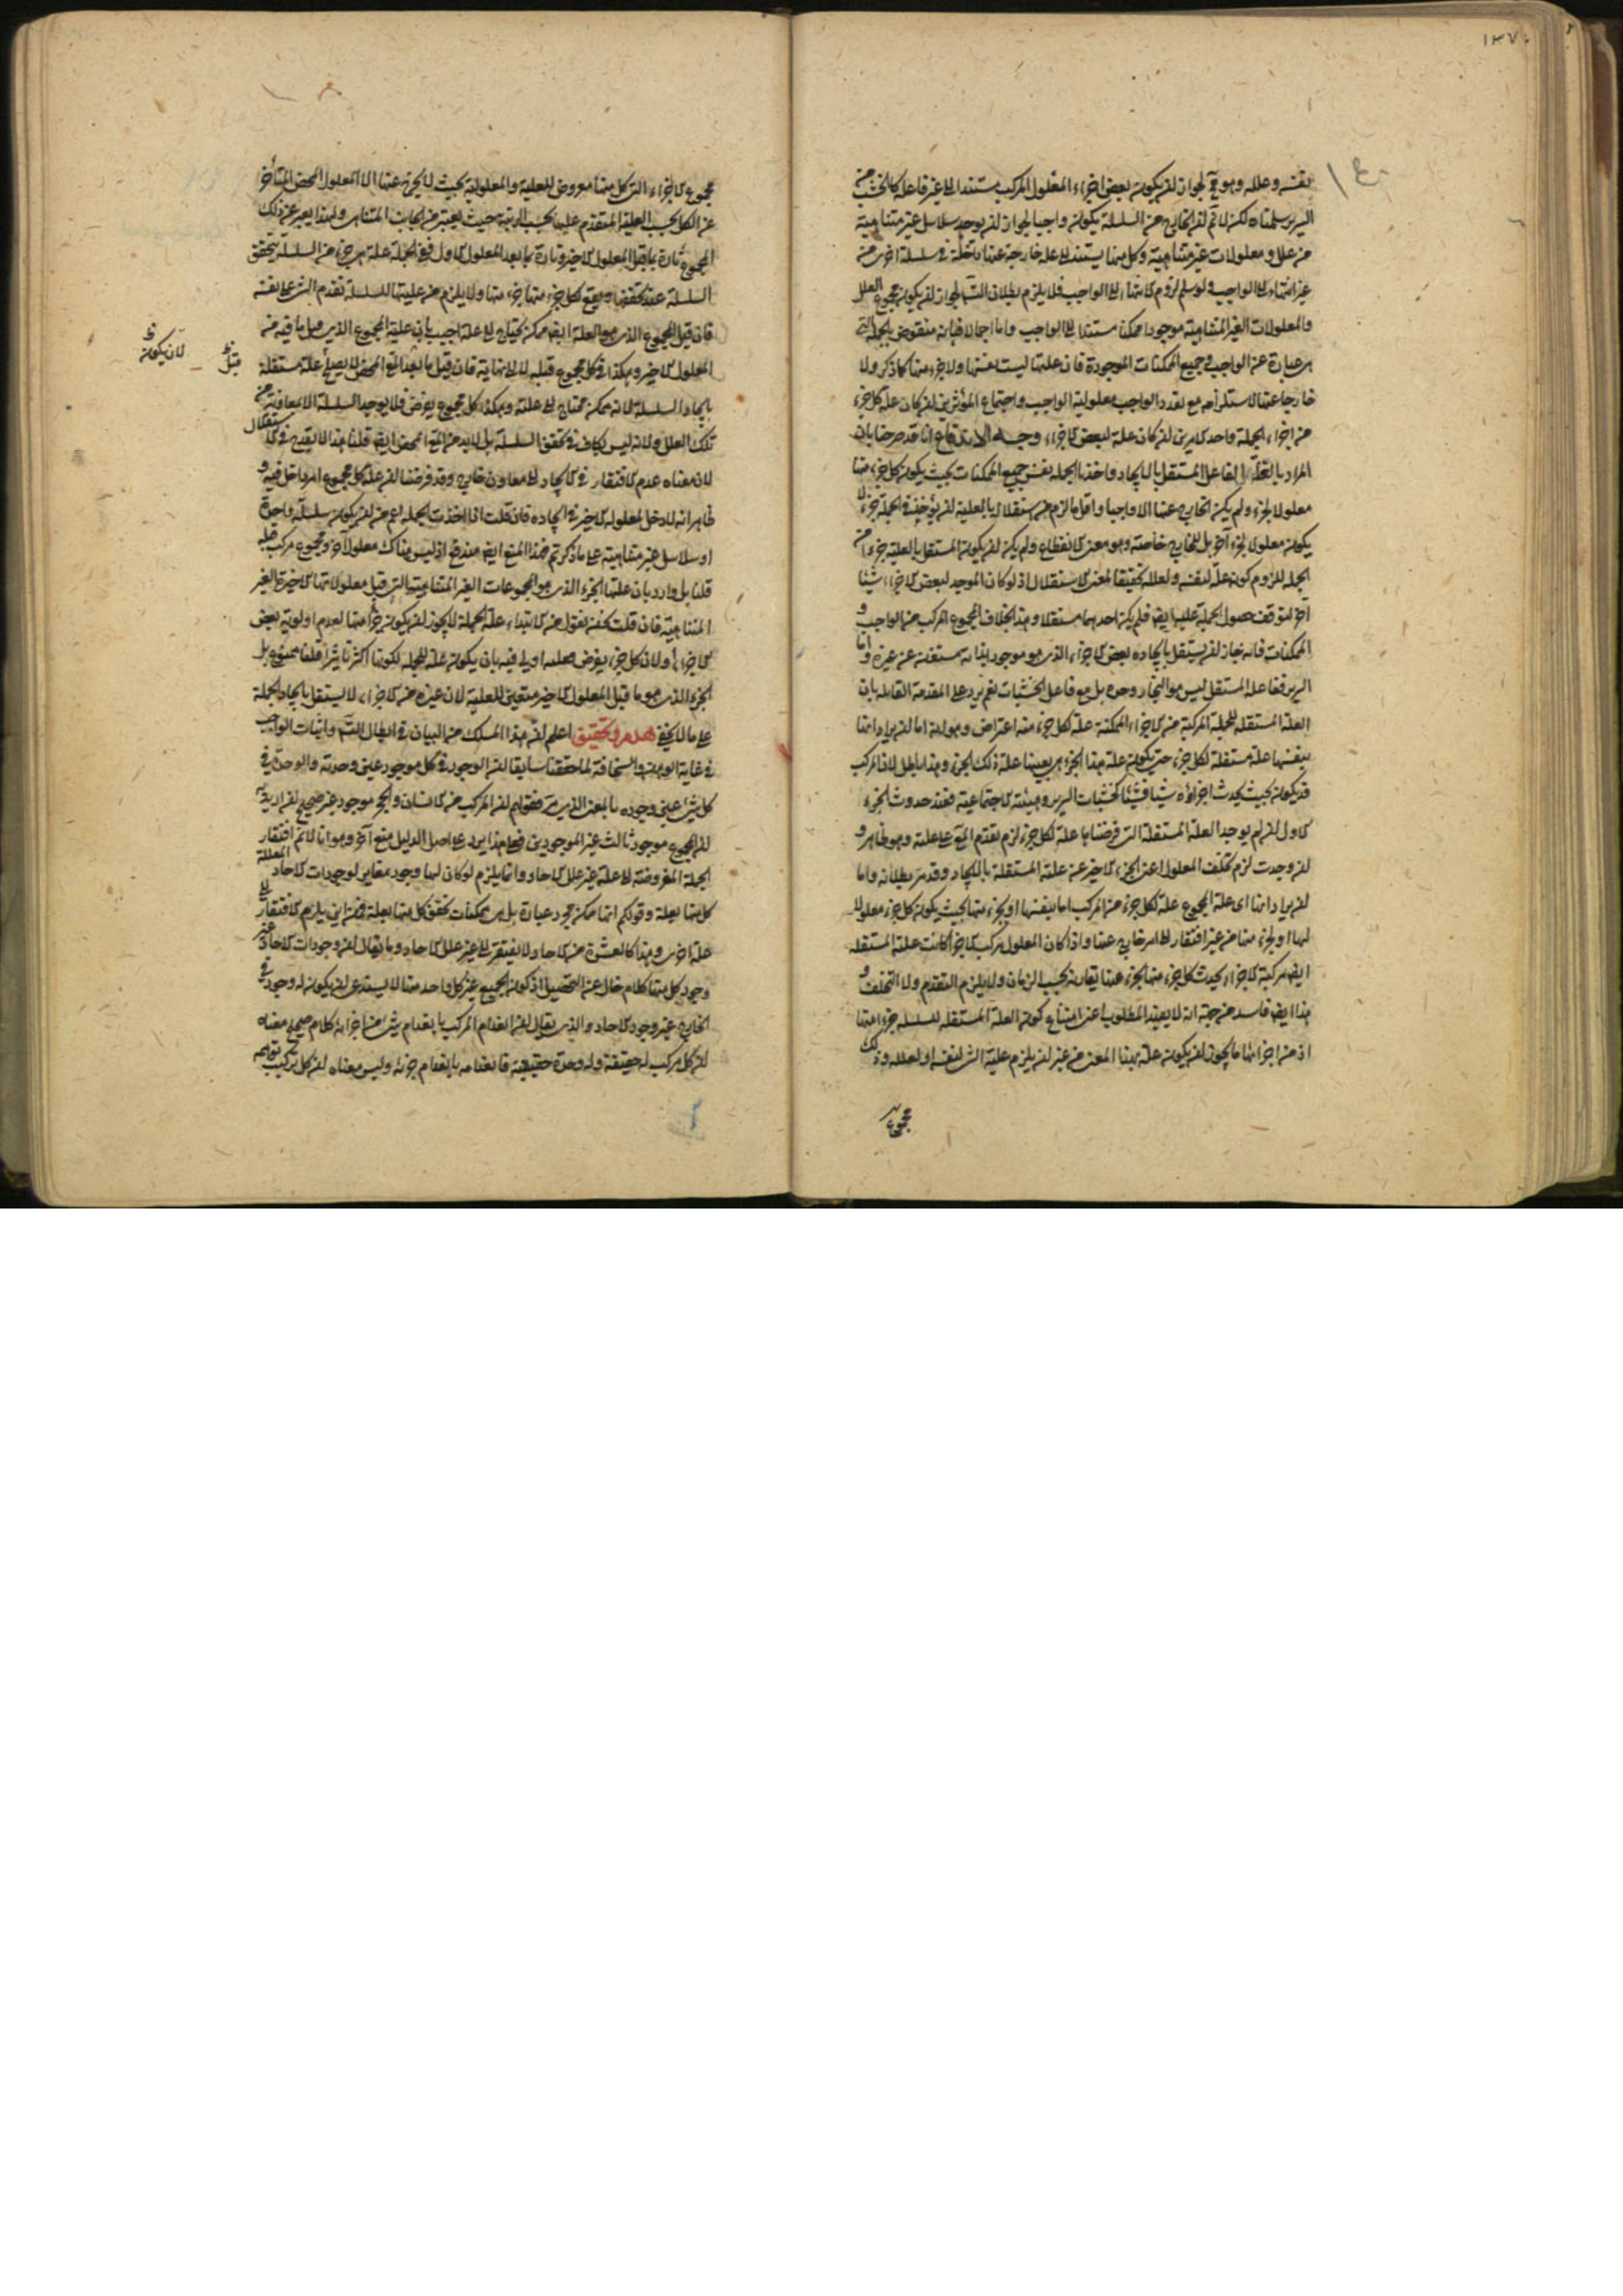 ١٣٧٠
نفسه وعلله وهو مح لجواز ان يكون بعض اجزاء المعلول المركب مستندا الى غير فاعله كالخشب من
السرير سلمناه لكن لا نم ان الخارج من السلسلة يكون واجبا لجواز ان يوجد سلاسل غير متناهية
من علل ومعلولات غير متناهية وكل منها يستند الى علة خارجة عنها داخلة في سلسلة اخرى من
غير انتهاء الى الواجب ولو سلم لزوم الانتهاء الى الواجب فلا يلزم بطلان التسلسل لجواز ان يكون مجموع العلل
والمعلولات الغير المتناهية موجودا ممكنا مستندا الى الواجب واما اجمالا فبانه منقوض بالجملة التي
هي عبارة عن الواجب وجميع الممكنات الموجودة فان علتها ليست نفسها ولا جزء منها كما ذكر ولا
خارجا عنها لاستلزامه مع تعدد الواجب معلولية الواجب واجتماع المؤثرين ان كان علة لكل جزء
من اجزاء الجملة واحد الامرين ان كان علة لبعض الاجزاء وجه الاندفاع انا قد صرحنا بان
المراد بالعلة الفاعل المستقل بالايجاد واخذنا الجملة نفس جميع الممكنات بحيث يكون كل جزء منها
معلولا لجزء ولم يكن الخارج عنها الا واجبا واقل ما لزم من استقلاله بالعلية ان يوجد في الجملة جزء لا
يكون معلولا لجزء آخر بل للخارج خاصة وهو معنى الانقطاع ولم يكن ان يكون المستقل بالعلية جزءا من
الجملة للزوم كونه علة لنفسه ولعلله تحقيقا لمعنى الاستقلال اذ لو كان الموجد لبعض الاجزاء شيئا
آخر لتوقف حصول الجملة عليه ايضا فلم يكن احدهما مستقلا وهذا بخلاف المجموع المركب من الواجب و
الممكنات فانه جاز ان يستقل بايجاده بعض الاجزاء الذي هو موجود بذاته مستغن عن غيره واما
السرير ففاعله المستقل ليس هو النجار وحده بل مع فاعل الخشبات نعم يرد على المقدمة القائلة بان
العلة المستقلة للجملة المركبة من الاجزاء الممكنة علة لكل جزء منه اعتراض وهو انه اما ان يراد انها
بنفسها علة مستقلة لكل جزء حتى يكون علة هذا الجزء هي بعينها علة ذلك الجزء وهذا باطل لان المركب
قد يكون بحيث يحدث اجزاؤه شيئا فشيئا كخشبات السرير وهيئته الاجتماعية فعند حدوث الجزء
الاول ان لم يوجد العلة المستقلة التي فرضناها علة لكل جزء لزم تقدم المع على علته وهو ظاهر و
ان وجدت لزم تخلف المعلول اعنى الجزء الاخير عن علته المستقلة بالايجاد وقد مر بطلانه واما
ان يراد انها اى علة المجموع علة لكل جزء من المركب اما بنفسها او بجزء منها بحيث يكون كل جزء معلولا
لها او لجزء منها من غير افتقار الى امر خارج عنها واذا كان المعلول مركب الاجزاء كانت علته المستقلة
ايضا مركبة الاجزاء يحدث كل جزء منها بجزء منها يقارنه بحسب الزمان ولا يلزم التقدم ولا التخلف و
هذا ايضا فاسد من جهة انه لا يفيد المطلوب اعنى امتناع كون العلة المستقلة للسلسلة جزءا منها
اذ من اجزائها ما يجوز ان يكون علة بهذا المعنى من غير ان يلزم علية الشئ لنفسه او لعلله وذلك
مجموع
مجموع الاجزاء التي كل منها معروض للعلية والمعلولية بحيث لا يخرج عنها الا المعلول المحض المتأخر
عن الكل بحسب العلية المتقدم عليها بحسب الرتبة حيث يعتبر من الجانب المتناهى ولهذا يعبر عن ذلك
المجموع تارة بما قبل المعلول الاخير وتارة بما بعد المعلول الاول ففي الجملة علة هي جزء من السلسلة يتحقق
السلسلة عند تحققها ويقع لكل جزء منها جزء منها ولا يلزم من عليتها للسلسلة تقدم الشئ على نفسه
فان قيل المجموع الذي هو العلة ايضا ممكن يحتاج الى علة اجيب بان علية المجموع الذي قبل ما فيه من
المعلول الاخير وهكذا في كل مجموع قبله لا الى نهاية فان قيل ما بعد المع المحض لا يصلح علة مستقلة
بايجاد السلسلة لانه ممكن محتاج الى علته وهكذا كل مجموع يفرض فلا يوجد السلسلة الا بمعاونة من
تلك العلل ولانه ليس بكاف في تحقق السلسلة بل لا بد من المع المحض ايضا قلنا هذا لا يقدح في الاستقلال
لان معناه عدم الافتقار في الايجاد الى معاون خارج وقد فرضنا ان علة كل مجموع امر داخل فيه و
ظاهر انه لا دخل لمعلوله الاخير في ايجاده فان قلت اذا اخذت الجملة اعم من ان يكون سلسلة واحدة
او سلاسل غير متناهية على ما ذكرتم فهذا المنع ايضا مندفع اذ ليس هناك معلول آخر ومجموع مركب قبله
قلنا بل وارد بان علتها الجزء الذي هو المجموعات الغير المتناهية التي قبل معلولاتها الاخيرة الغير
المتناهية فان قلت نحن نقول من الابتداء علة الجملة لا يجوز ان يكون جزءا منها لعدم اولوية بعض
الاجزاء او لان كل جزء يفرض فعلته اولى فيه بان يكون علة للجملة لكونها اكثر تاثيرا قلنا ممنوع بل
الجزء الذي هو ما قبل المعلول الاخير متعين للعلية لان غيره من الاجزاء لا يستقل بايجاد الجملة
على ما لا يخفى هدم وتحقيق اعلم ان هذا المسلك من البيان في ابطال التس واثبات الواجب
في غاية الوهن والسخافة لما حققنا سابقا ان الوجود في كل موجود عين وحدته والوحدة في
كل شئ عين وجوده بالمعنى الذي مر فقولهم ان المركب من الانسان والحجر موجود غير صحيح ان اريد به
ان المجموع موجود ثالث غير الموجودين فعلى هذا يرد على اصل الدليل منع آخر وهو انا لا نم افتقار
الجملة المفروضة الى علة غير علل الاحاد وانما يلزم لو كان لها وجود مغاير لوجودات الاحاد المعللة
كل منها بعلة وقولكم انها ممكن مجرد عبارة بل هى ممكنات تحقق كل منها بعلته فمن اين يلزم الافتقار الى
علة اخرى وهذا كالعشرة من الاحاد ولا يفتقر الى غير علل الاحاد وما يقال ان وجودات الاحاد غير
وجود كل منها كلام خال عن التحصيل اذ كون الجميع غير كل واحد منها لا يستدعى ان يكون له وجود في
الخارج غير وجود الاحاد والذي يقال ان انعدام المركب بانعدام شئ من اجزائه كلام صحيح معناه
ان كل مركب له حقيقة وله وحدة حقيقية فانعدامه بانعدام جزئه وليس معناه ان كل تركيب توهمه
قبل ظ
لان يكون ظ